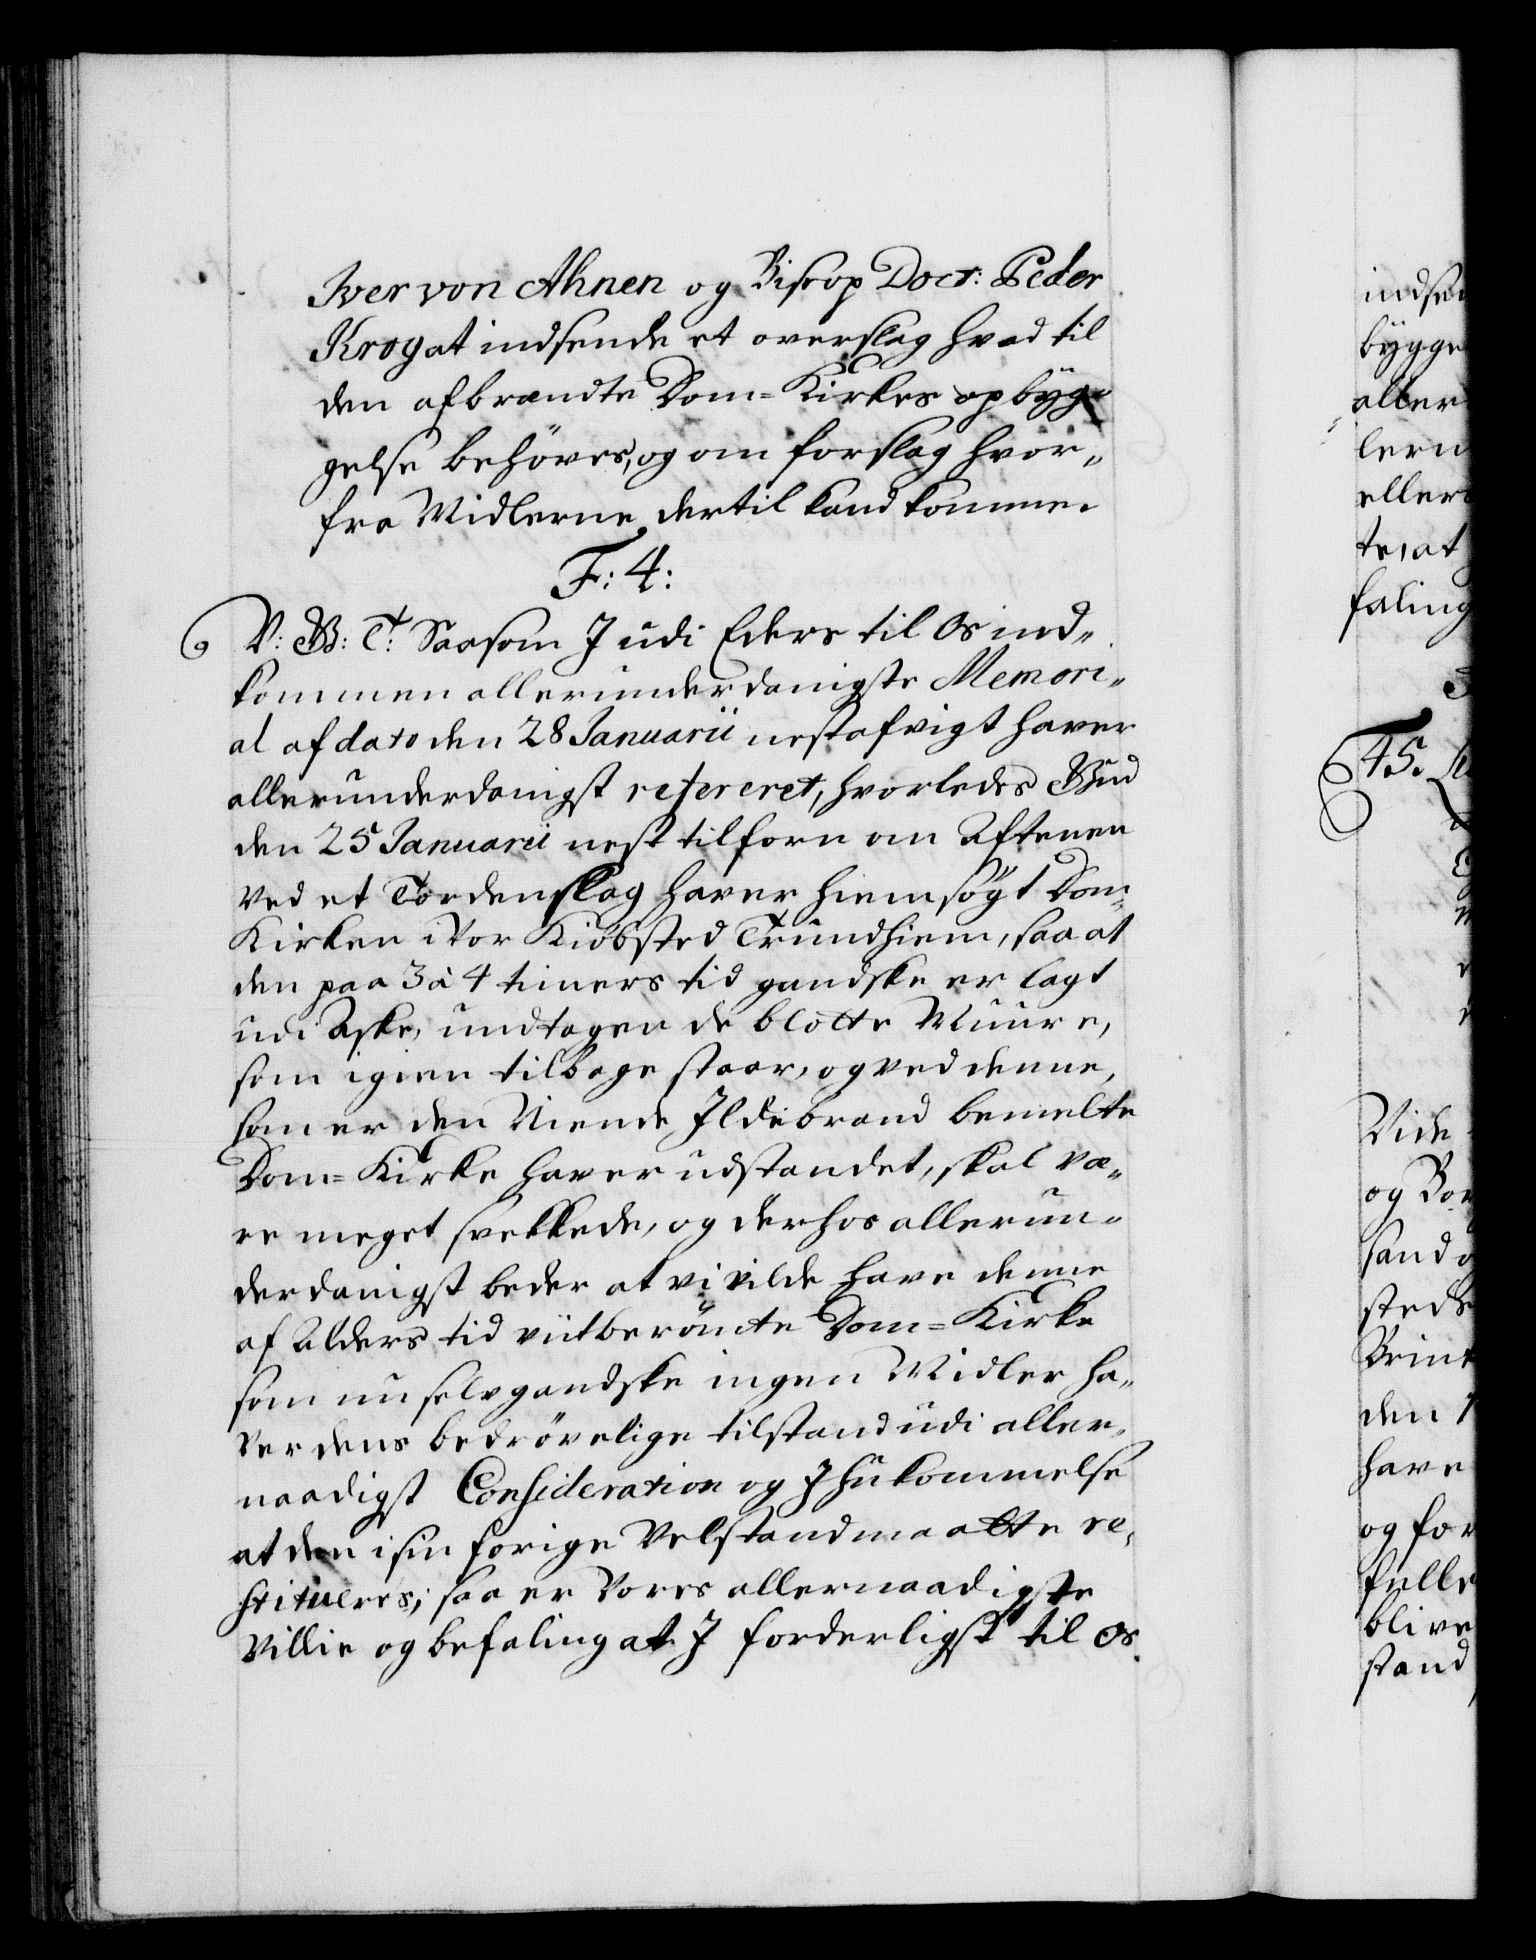 Iver von Ahnen og Biscop Doct: Peder
Krog at indsende et overslag hvad til
den afbrændte Dom=Kirkes opbyg„
gelse behöves, og om forslag hvor„
fra Midlerne dertil kand komme.
F: 4:
V: G: T: Saasom I udi Eders til Os ind„
kommen allerunderdanigste Memori„
al af dato den 28 Januarii nestafvigt haver
allerunderdanigst refereret, hvorledes Gud
den 25 Januarii nest tilforn om Aftenen
ved et Tordenslag haver hiemsögt Dom„
Kirken i Vor Kiöbsted Trundhiem, saa at
den paa 3 à 4 timers tid gandske er lagt
udi Aske, undtagen de blotte Muure,
som igien tilbage staar, og ved denne,
som er den Niende Ildebrand bemelte
Dom=Kirke haver udstandet, skal væ„
re meget svekkede, og derhos allerun„
derdanigst beder at vi vilde have denne
af Alders tid viitberömte Dom=Kirke
som nu selv gandske ingen Midler ha„
ver dens bedrövelige tilstand udi aller„
naadigst Consideration og Ihukommelse
at den i sin forige Velstand maatte re„
stitueres; saa er Vores allernaadigste
Villie og befaling at I forderligst til Os
indsen
bygge
aller
lern
eller
te, at
faling
45.
Vide
og Bor
sand o
steds
Brin
den
have
og for
felle
blive
stand